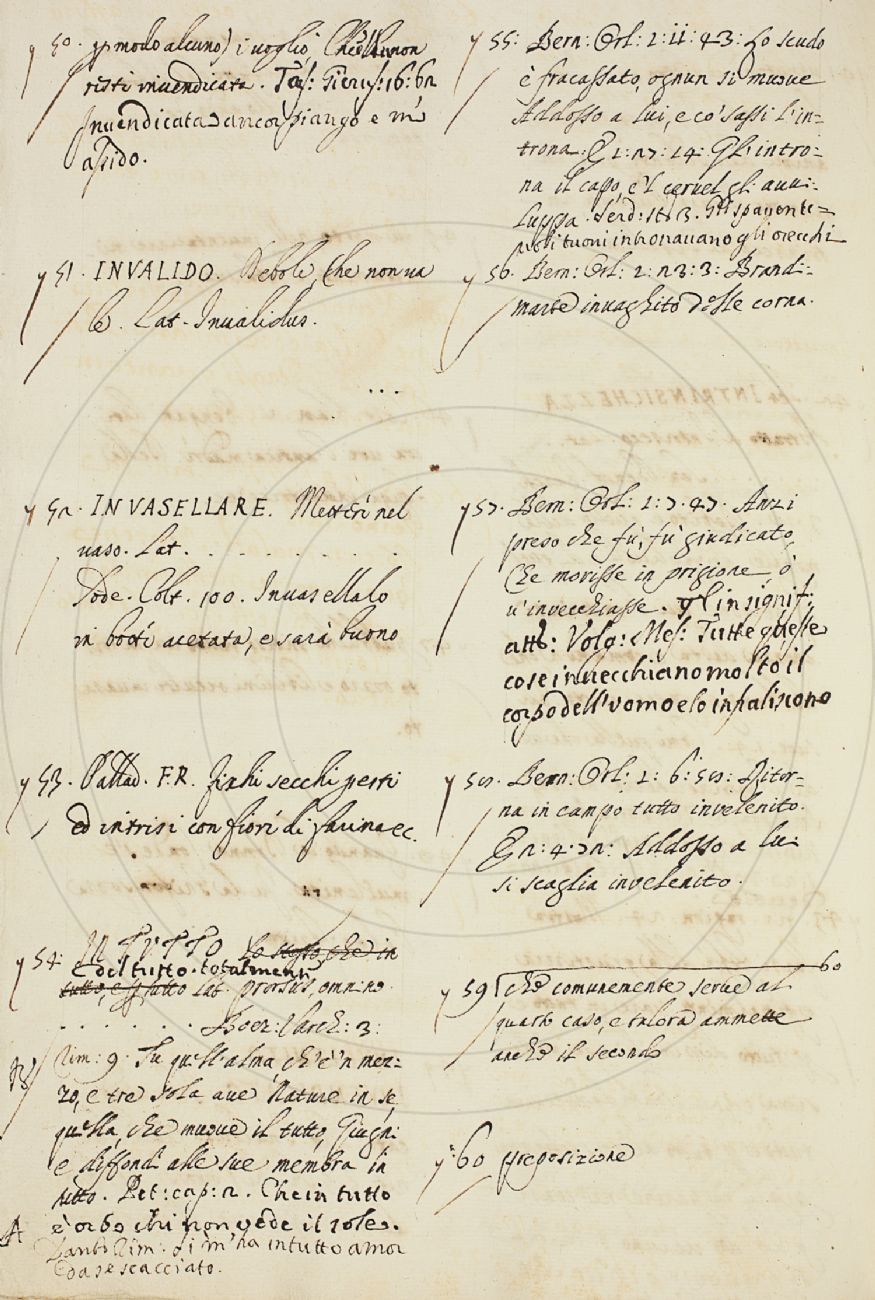 50. modo alcuno) i voglio, Che non
resti invendicata. Tass: Gierus: 16: 62
Invendicata ancor piango e m'
assido.
51. INVALIDO. Debole, Che non va
le. Lat. Invalidus.
. . .
52. INVASELLARE. Metter nel
vaso. Lat. . . . . . . . .
Dode. Colt. 100. Invasellalo
in botti acetata, e sarà buono
53. Pallad. F.R. fichi secchi pesti
ed intrisi con fiori di farina ec.
54: IN TUTTO Lo stesso, che in
E del tutto. totalmente
tutto, e Lat. prorsus, omnino
. . . . . . . Boez: Varch: 3:
Rim: 9. Tu quell'alma, ch'è 'n mez=
zo, e tre sola ave Nature in se,
quella, che muove il tutto, Giugni
e diffondi alle sue membra in
tutto. Pet: cap: 2. Che in tutto
è orbo chi non vede il sole.
A
Rim: Sì m'ha in tutto amor
da se scacciato.
55: Bern: Orl: 1: 11: 43: Lo scudo
è fracassato, ognun si muove
Addosso a lui, e co' sassi l'in=
trona. E 1: 27: 14: Gl'intro=
na il capo, e 'l cervel gli avvi=
luppa. Serd: st: 3. Gli spavente=
voli tuoni intronavano gli orecchi
56. Bern: Orl: 1: 23: 3: Brandi=
marte invaghito delle corna.
57. Bern: Orl: 1: 7. 47. Anzi
preso che fù, fù giudicato,
Che morisse in prigione, ò
v'invecchiasse. in signif:
att: Volg: Mes: Tutte queste
cose invecchiano molto il
corpo dell'uomo e lo infralisiono
58. Bern: Orl: 1: 6: 58: Ritor=
na in campo tutto invelenito.
E 2: 4: 72: Addosso a lui
si scaglia invelenito.
60
59 che comunemente serve al
quarto caso, e talora ammette
anche il secondo
60 preposizione